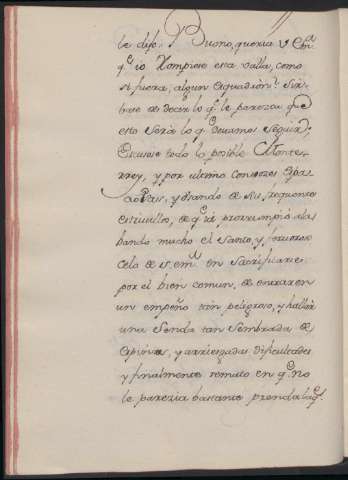 le dijo: Bueno, queria V. Em.ª
q.e io Rompiese esta valla, como
si fuera, algun esquadròn. Sir-
base de decir lo q.e le parezca que
esto serà lo q.e devamos seguir.
Escusose todo lo posible Monte-
rrey, y por ultimo con voces
y usando de sus frequentes
estrivillos, de q.e prorrumpiò ala-
bando mucho el Santo, y fervoroso
celo de s. em.ª en sacrificarse
por el bien comun, de entrar en
un empeño tan peligroso, y hallar
una senda tan sembrada de
espinas, y arriezgadas dificultades
y finalmente remato en q.e no
le parezia bastante prenda la q.e